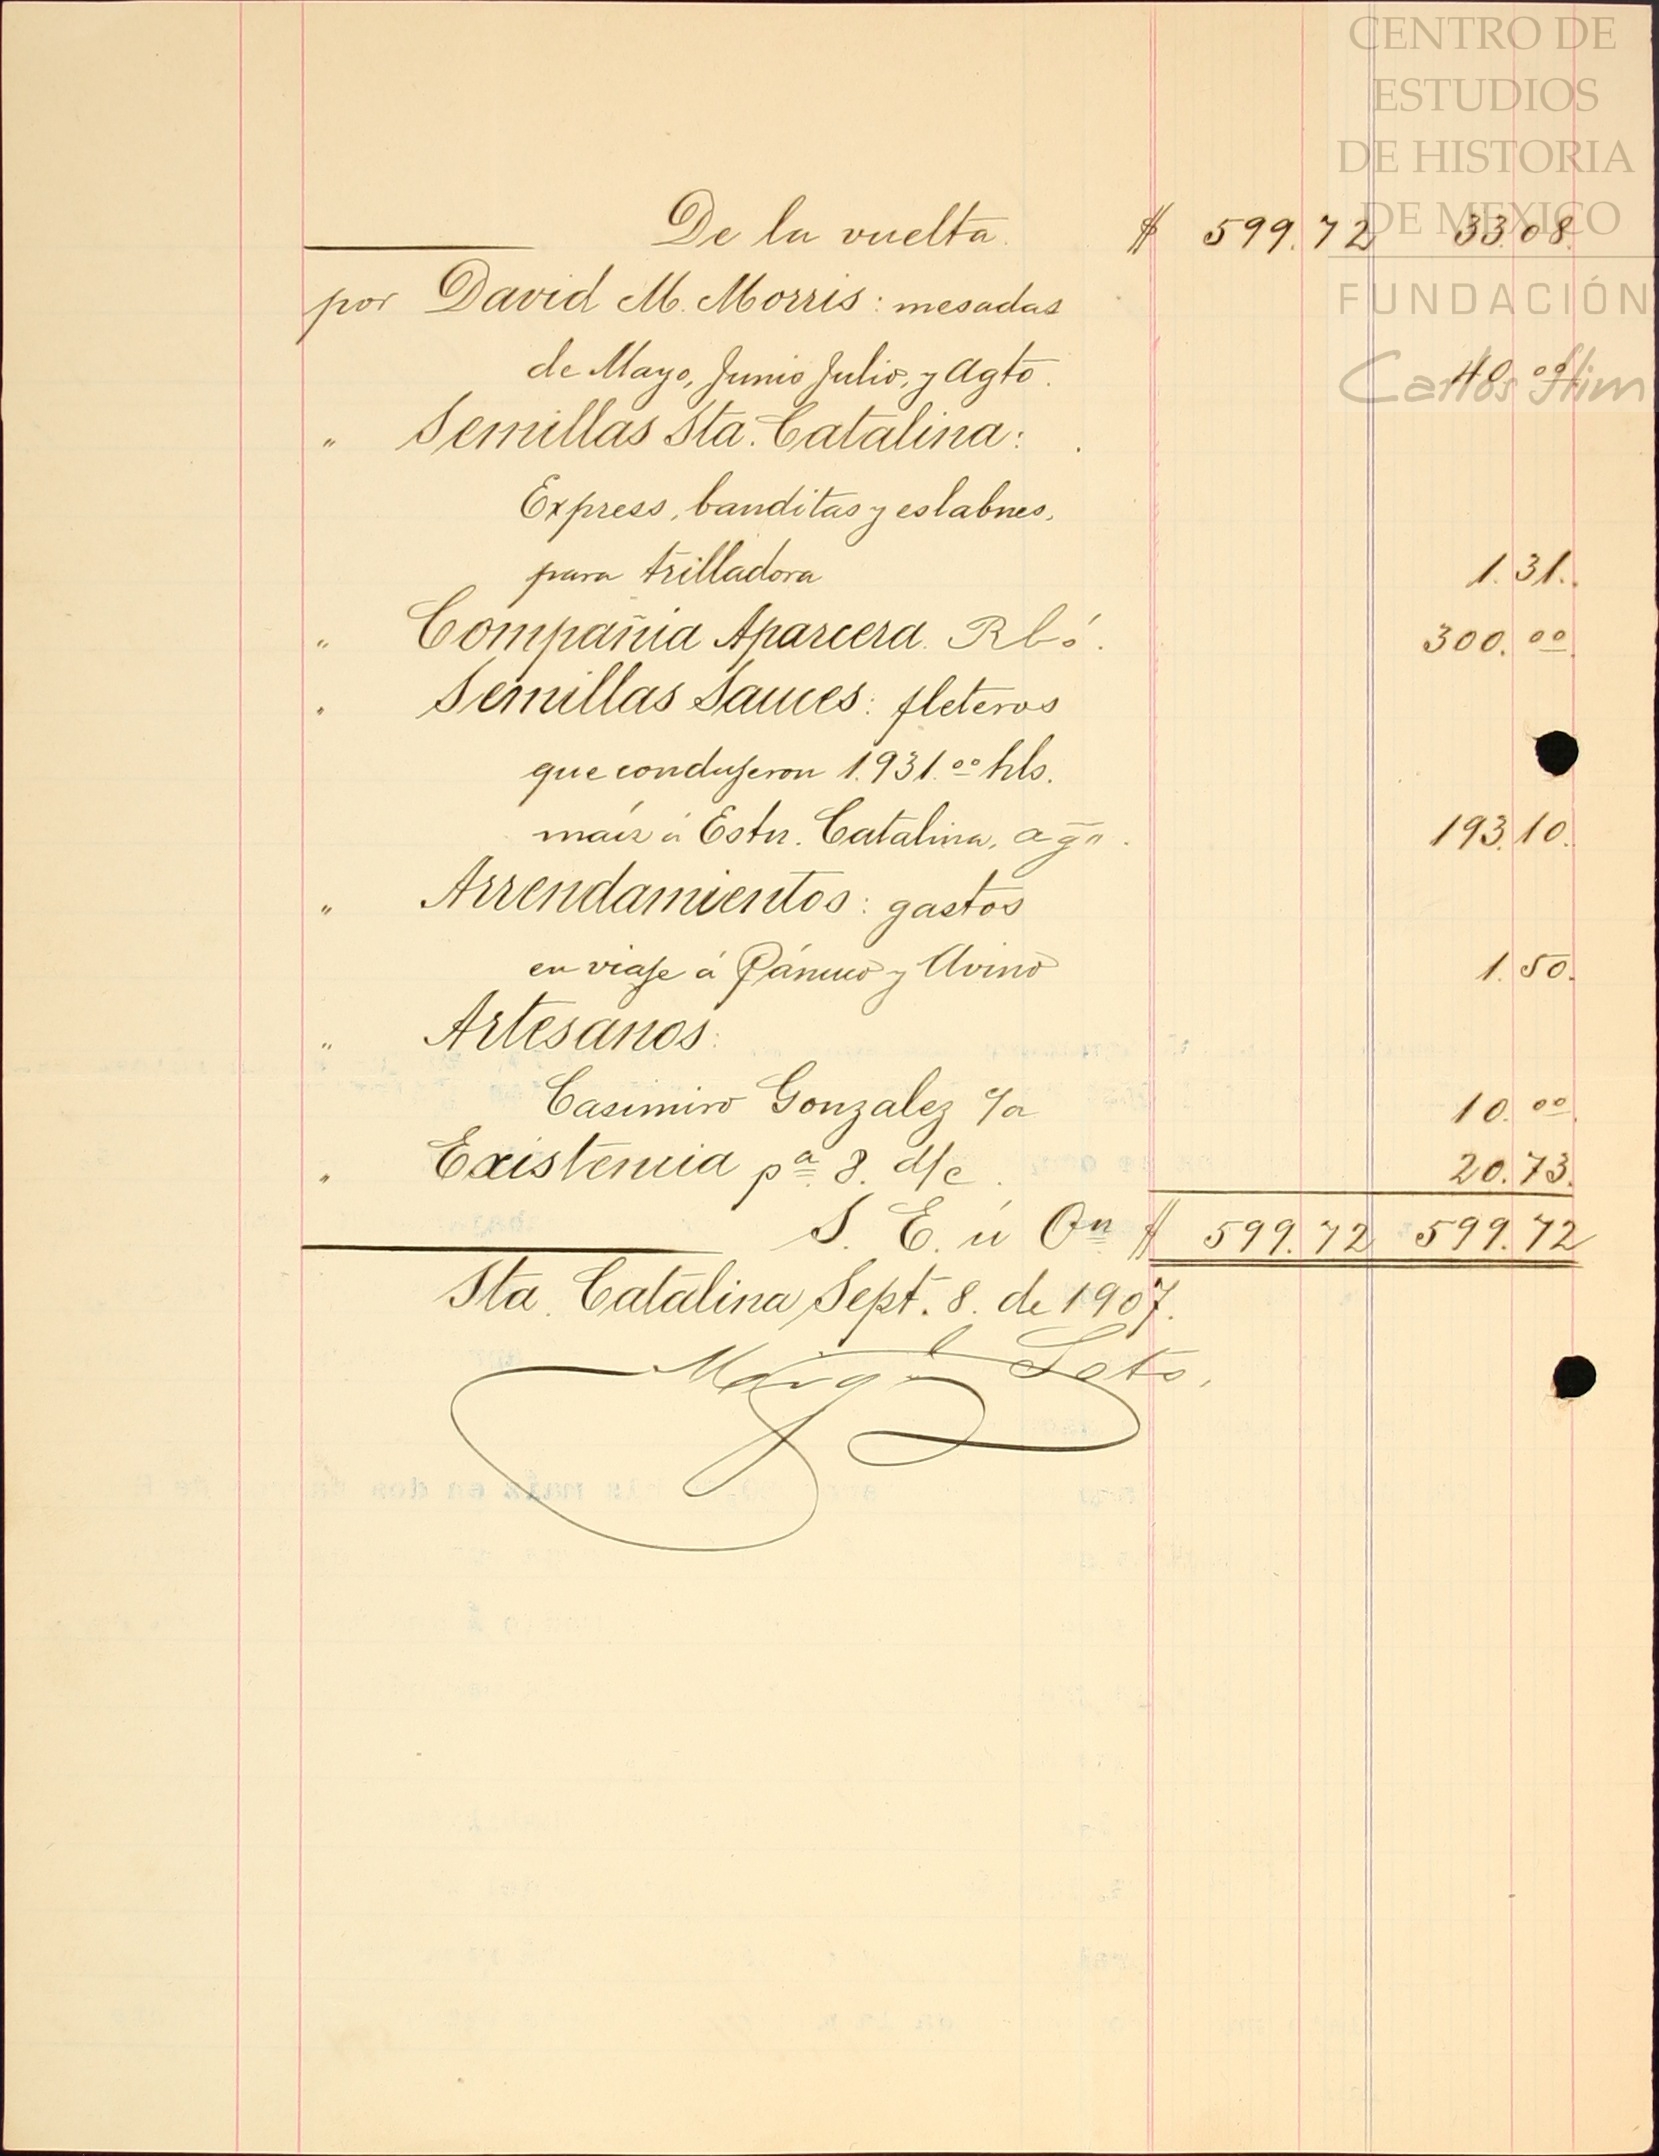 CENTRO DE
ESTUDIOS
DE HISTORIA
DE MEXICO
FUNDACIÓN
Carlos Slim
De la vuelta. $ 599.72 33.08.
por David M. Morris: mesadas
de Mayo, Junio Julio, y Agto. 40.00.
" Semillas Sta. Catalina:
Express, banditas y eslabnes,
para trilladora 1.31.
" Compañia Aparcera. Rbó. 300.00.
" Semillas Sauces: fleteros
que condujeron 1.931.00 hls.
maíz á Estn. Catalina, 193.10.
" Arrendamientos: gastos
en viaje á Pánuco y Avino 1.50.
" Artesanos:
Casimiro Gonzalez 10.00.
" Existencia pa. 8. d/c. 20.73.
S. E. ú On $ 599.72 599.72
Sta. Catalina, Sept. 8. de 1907.
Soto.